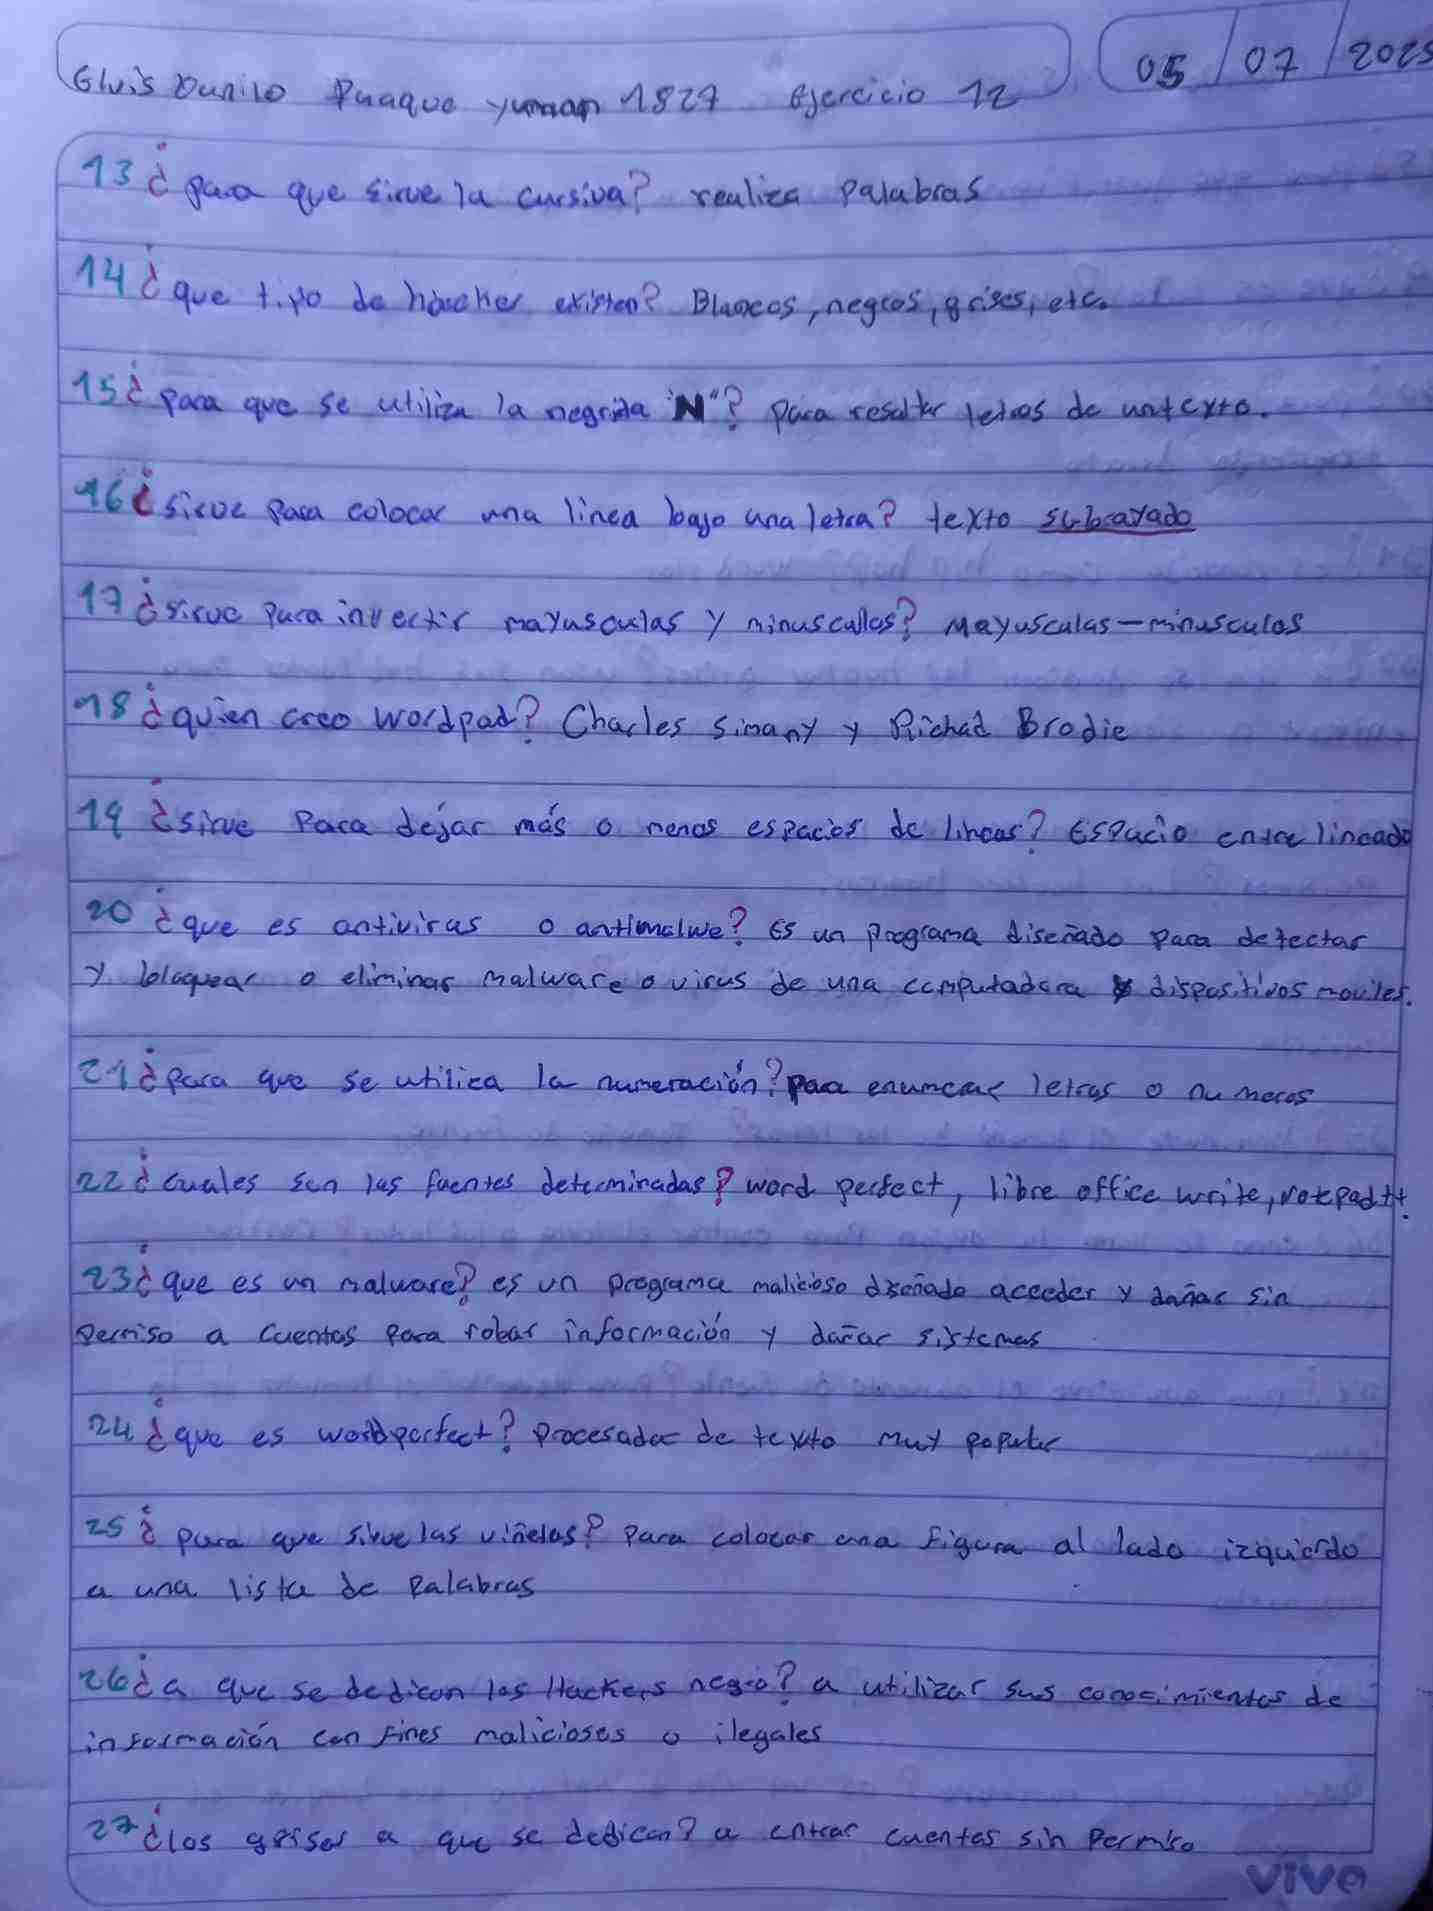 Elvis Danilo Puaque yuman 1827 Ejercicio 12
05/07/2025
13 ¿para que sirve la cursiva? realiza palabras
14 ¿que tipo de hacker existen? Blancos, negros, grises, etc.
15 ¿para que se utiliza la negrita "N"? para resaltar letras de un texto.
16 ¿sirve para colocar una linea bajo una letra? texto subrayado
17 ¿sirve para invertir mayusculas y minusculas? Mayusculas-minusculas
18 ¿quien creo Wordpad? Charles Simany y Richad Brodie
19 ¿sirve para dejar más o menos espacios de lineas? Espacio entre lineado
20 ¿que es antivirus o antimalwe? Es un programa diseñado para detectar
y bloquear o eliminar malware o virus de una computadora y dispositivos moviles.
21 ¿para que se utiliza la numeración? para enumerar letras o numeros
22 ¿cuales son las fuentes determinadas? word perfect, libre office write, notepad++.
23 ¿que es un malware? es un programa malicioso diseñado acceder y dañar sin
permiso a cuentas para robar información y dañar sistemas
24 ¿que es wordperfect? procesador de texto muy popular
25 ¿para que sirve las viñelas? para colocar una figura al lado izquierdo
a una lista de palabras
26 ¿a que se dedican los Hackers negro? a utilizar sus conocimientos de
información con fines maliciosos o ilegales
27 ¿los grises a que se dedican? a entrar cuentas sin permiso
vive